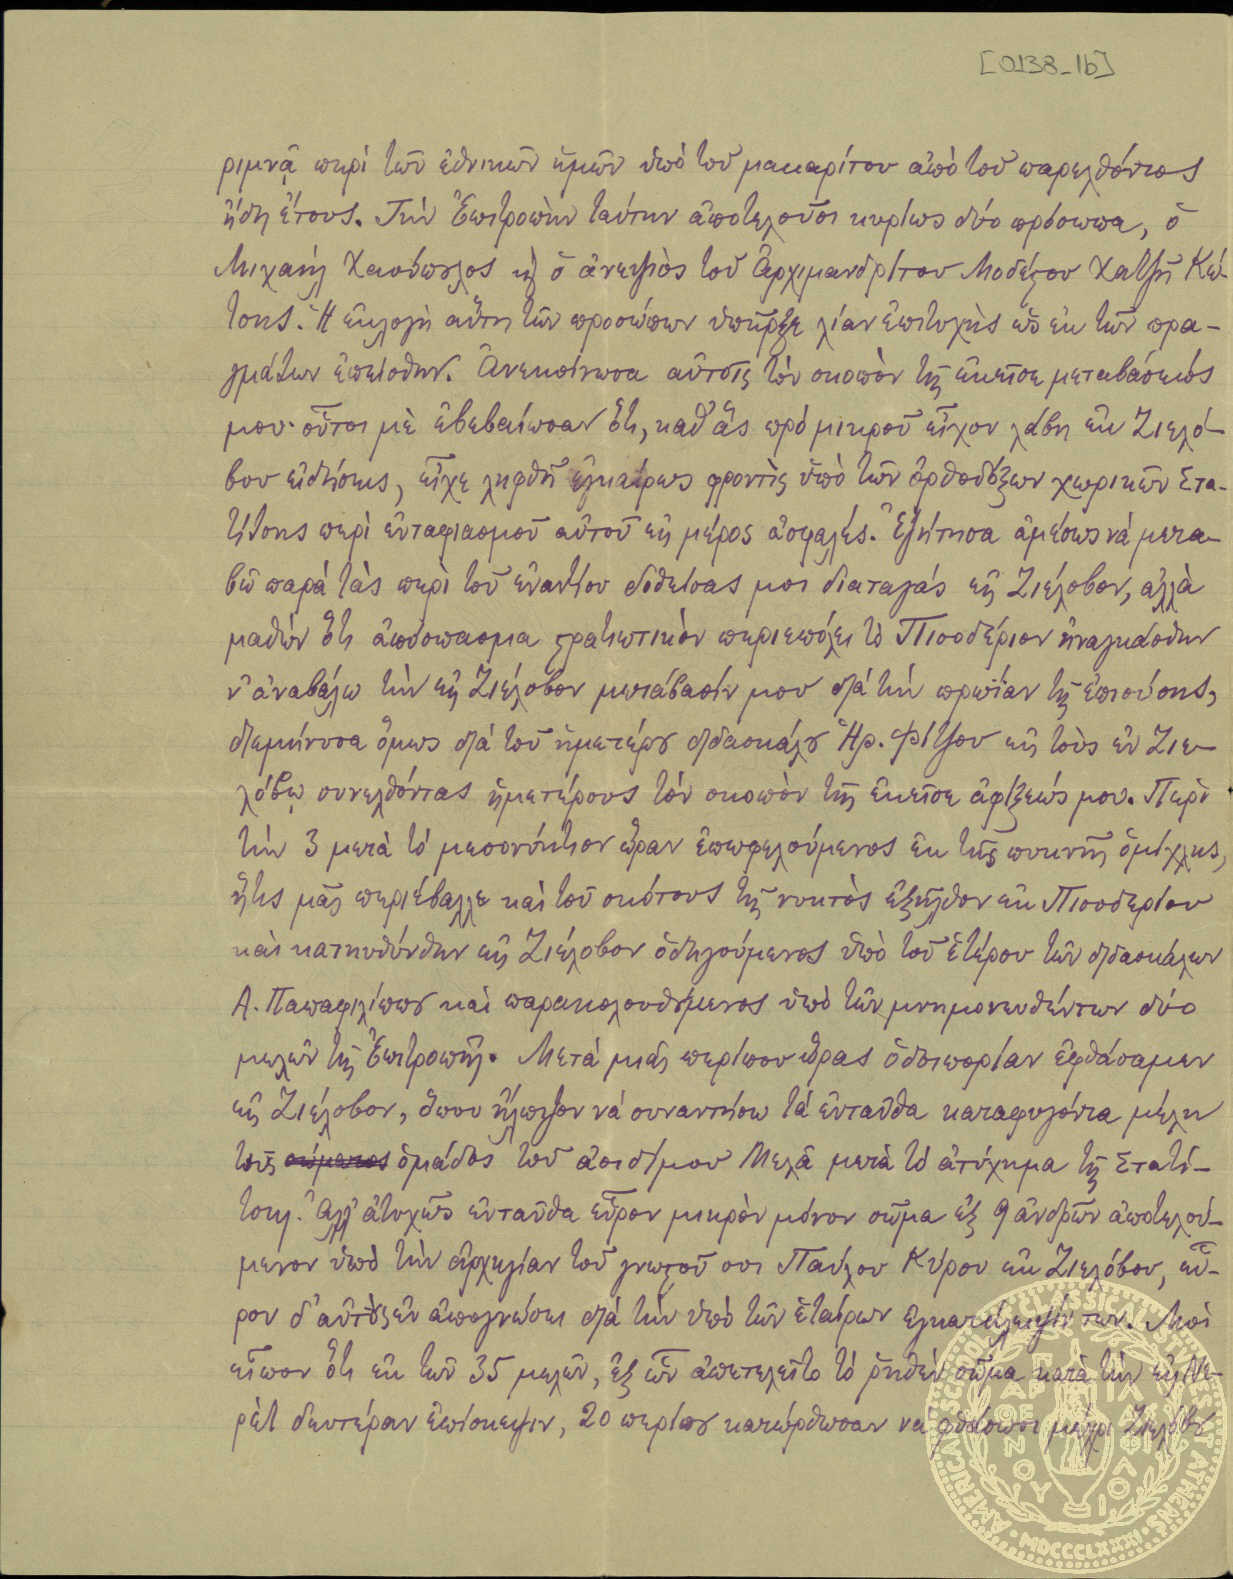 [0138_1b]
ριμνᾷ περὶ τῶν ἐθνικῶν ἡμῶν ὑπὸ τοῦ μακαρίτου ἀπὸ τοῦ παρελθόντος
ἤδη ἔτους. Τὴν Ἐπιτροπὴν ταύτην ἀποτελοῦσι κυρίως δύο πρόσωπα, ὁ
Μιχαὴλ Χασόπουλος κ ὁ ἀνεψιὸς τοῦ Ἀρχιμανδρίτου Μοδέστου Χατζῆ Κώ-
τσης. Ἡ ἐκλογὴ αὕτη τῶν προσώπων ὑπῆρξε λίαν ἐπιτυχὴς ὡς ἐκ τῶν πρα-
γμάτων ἐπείσθην. Ἀνεκοίνωσα αὐτοῖς τὸν σκοπὸν τῆς ἐκεῖσε μεταβάσεώς
μου· οὗτοι μὲ ἐβεβαίωσαν ὅτι, καθ' ἃς πρὸ μικροῦ εἶχον λάβῃ ἐκ Ζιελό-
βου εἰδήσεις, εἶχε ληφθῆ ἐγκαίρως φροντὶς ὑπὸ τῶν ὀρθοδόξων χωρικῶν Στα-
τίτσης περὶ ἐνταφιασμοῦ αὐτοῦ εἰς μέρος ἀσφαλές. Ἐζήτησα ἀμέσως νὰ μετα-
βῶ παρὰ τὰς περὶ τοῦ ἐναντίου δοθείσας μοι διαταγάς εἰς Ζιέλοβον, ἀλλὰ
μαθὼν ὅτι ἀπόσπασμα στρατιωτικὸν περιεπόλει τὸ Πισοδέριον ἠναγκάσθην
ν' ἀναβάλω τὴν εἰς Ζιέλοβον μετάβασίν μου διὰ τὴν πρωΐαν τῆς ἐπιούσης,
διεμήνυσα ὅμως διὰ τοῦ ἡμετέρου διδασκάλου Ἡρ. Φίτζου εἰς τοὺς ἐν Ζιε-
λόβῳ συνελθόντας ἡμετέρους τὸν σκοπὸν τῆς ἐκεῖσε ἀφίξεώς μου. Περὶ
τὴν 3 μετὰ τὸ μεσονύκτιον ὥραν ἐπωφελούμενος ἐκ τῆς πυκνῆς ὁμίχλης,
ἥτις μᾶς περιέβαλλε καὶ τοῦ σκότους τῆς νυκτὸς ἐξῆλθον ἐκ Πισοδερίου
καὶ κατηυθύνθην εἰς Ζιέλοβον ὁδηγούμενος ὑπὸ τοῦ ἑτέρου τῶν διδασκάλων
Α. Παπαφιλίππου καὶ παρακολουθούμενος ὑπὸ τῶν μνημονευθέντων δύο
μελῶν τῆς Ἐπιτροπῆς. Μετὰ μιᾶς περίπου ὥρας ὁδοιπορίαν ἐφθάσαμεν
εἰς Ζιέλοβον, ὅπου ἤλπιζον νὰ συναντήσω τὰ ἐνταῦθα καταφυγόντα μέλη
τῆς σώματος ὁμάδος τοῦ ἀοιδίμου Μελᾶ μετὰ τὸ ἀτύχημα τῆς Στατί-
τσης. Ἀλλ' ἀτυχῶς ἐνταῦθα εὗρον μικρὸν μόνον σῶμα ἐξ 9 ἀνδρῶν ἀποτελού-
μενον ὑπὸ τὴν ἀρχηγίαν τοῦ γνωστοῦ σοι Παύλου Κύρου ἐκ Ζιελόβου, εὗ-
ρον δ' αὐτοὺς ἐν ἀπογνώσει διὰ τὴν ὑπὸ τῶν ἑταίρων ἐγκατάλειψίν των. Μοὶ
εἶπον ὅτι ἐκ τῶν 35 μελῶν, ἐξ ὧν ἀπετελεῖτο τὸ ῥηθὲν σῶμα κατὰ τὴν εἰς Νε-
ρὲτ δευτέραν ἐπίσκεψιν, 20 περίπου κατώρθωσαν νὰ φθάσωσι μέχρι Ζιελόβου
AMERICAN SCHOOL OF CLASSICAL STUDIES AT ATHENS
MDCCCLXXXI